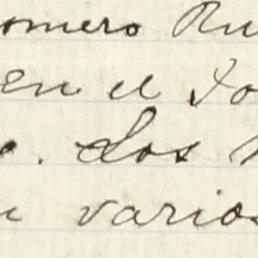 omero Ru
en el
. Los
varios